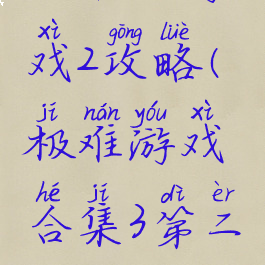 xì gōng lüè
戏2攻略(
jí nán yóu xì
极难游戏
hé jí dì èr
合集3第二